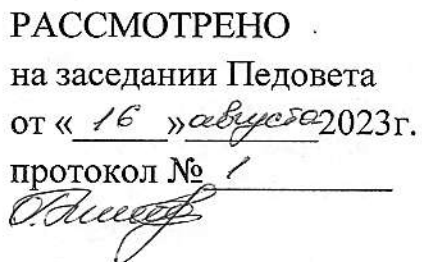 РАССМОТРЕНО
на заседании Педовета
от «16» августа 2023г.
протокол № 1